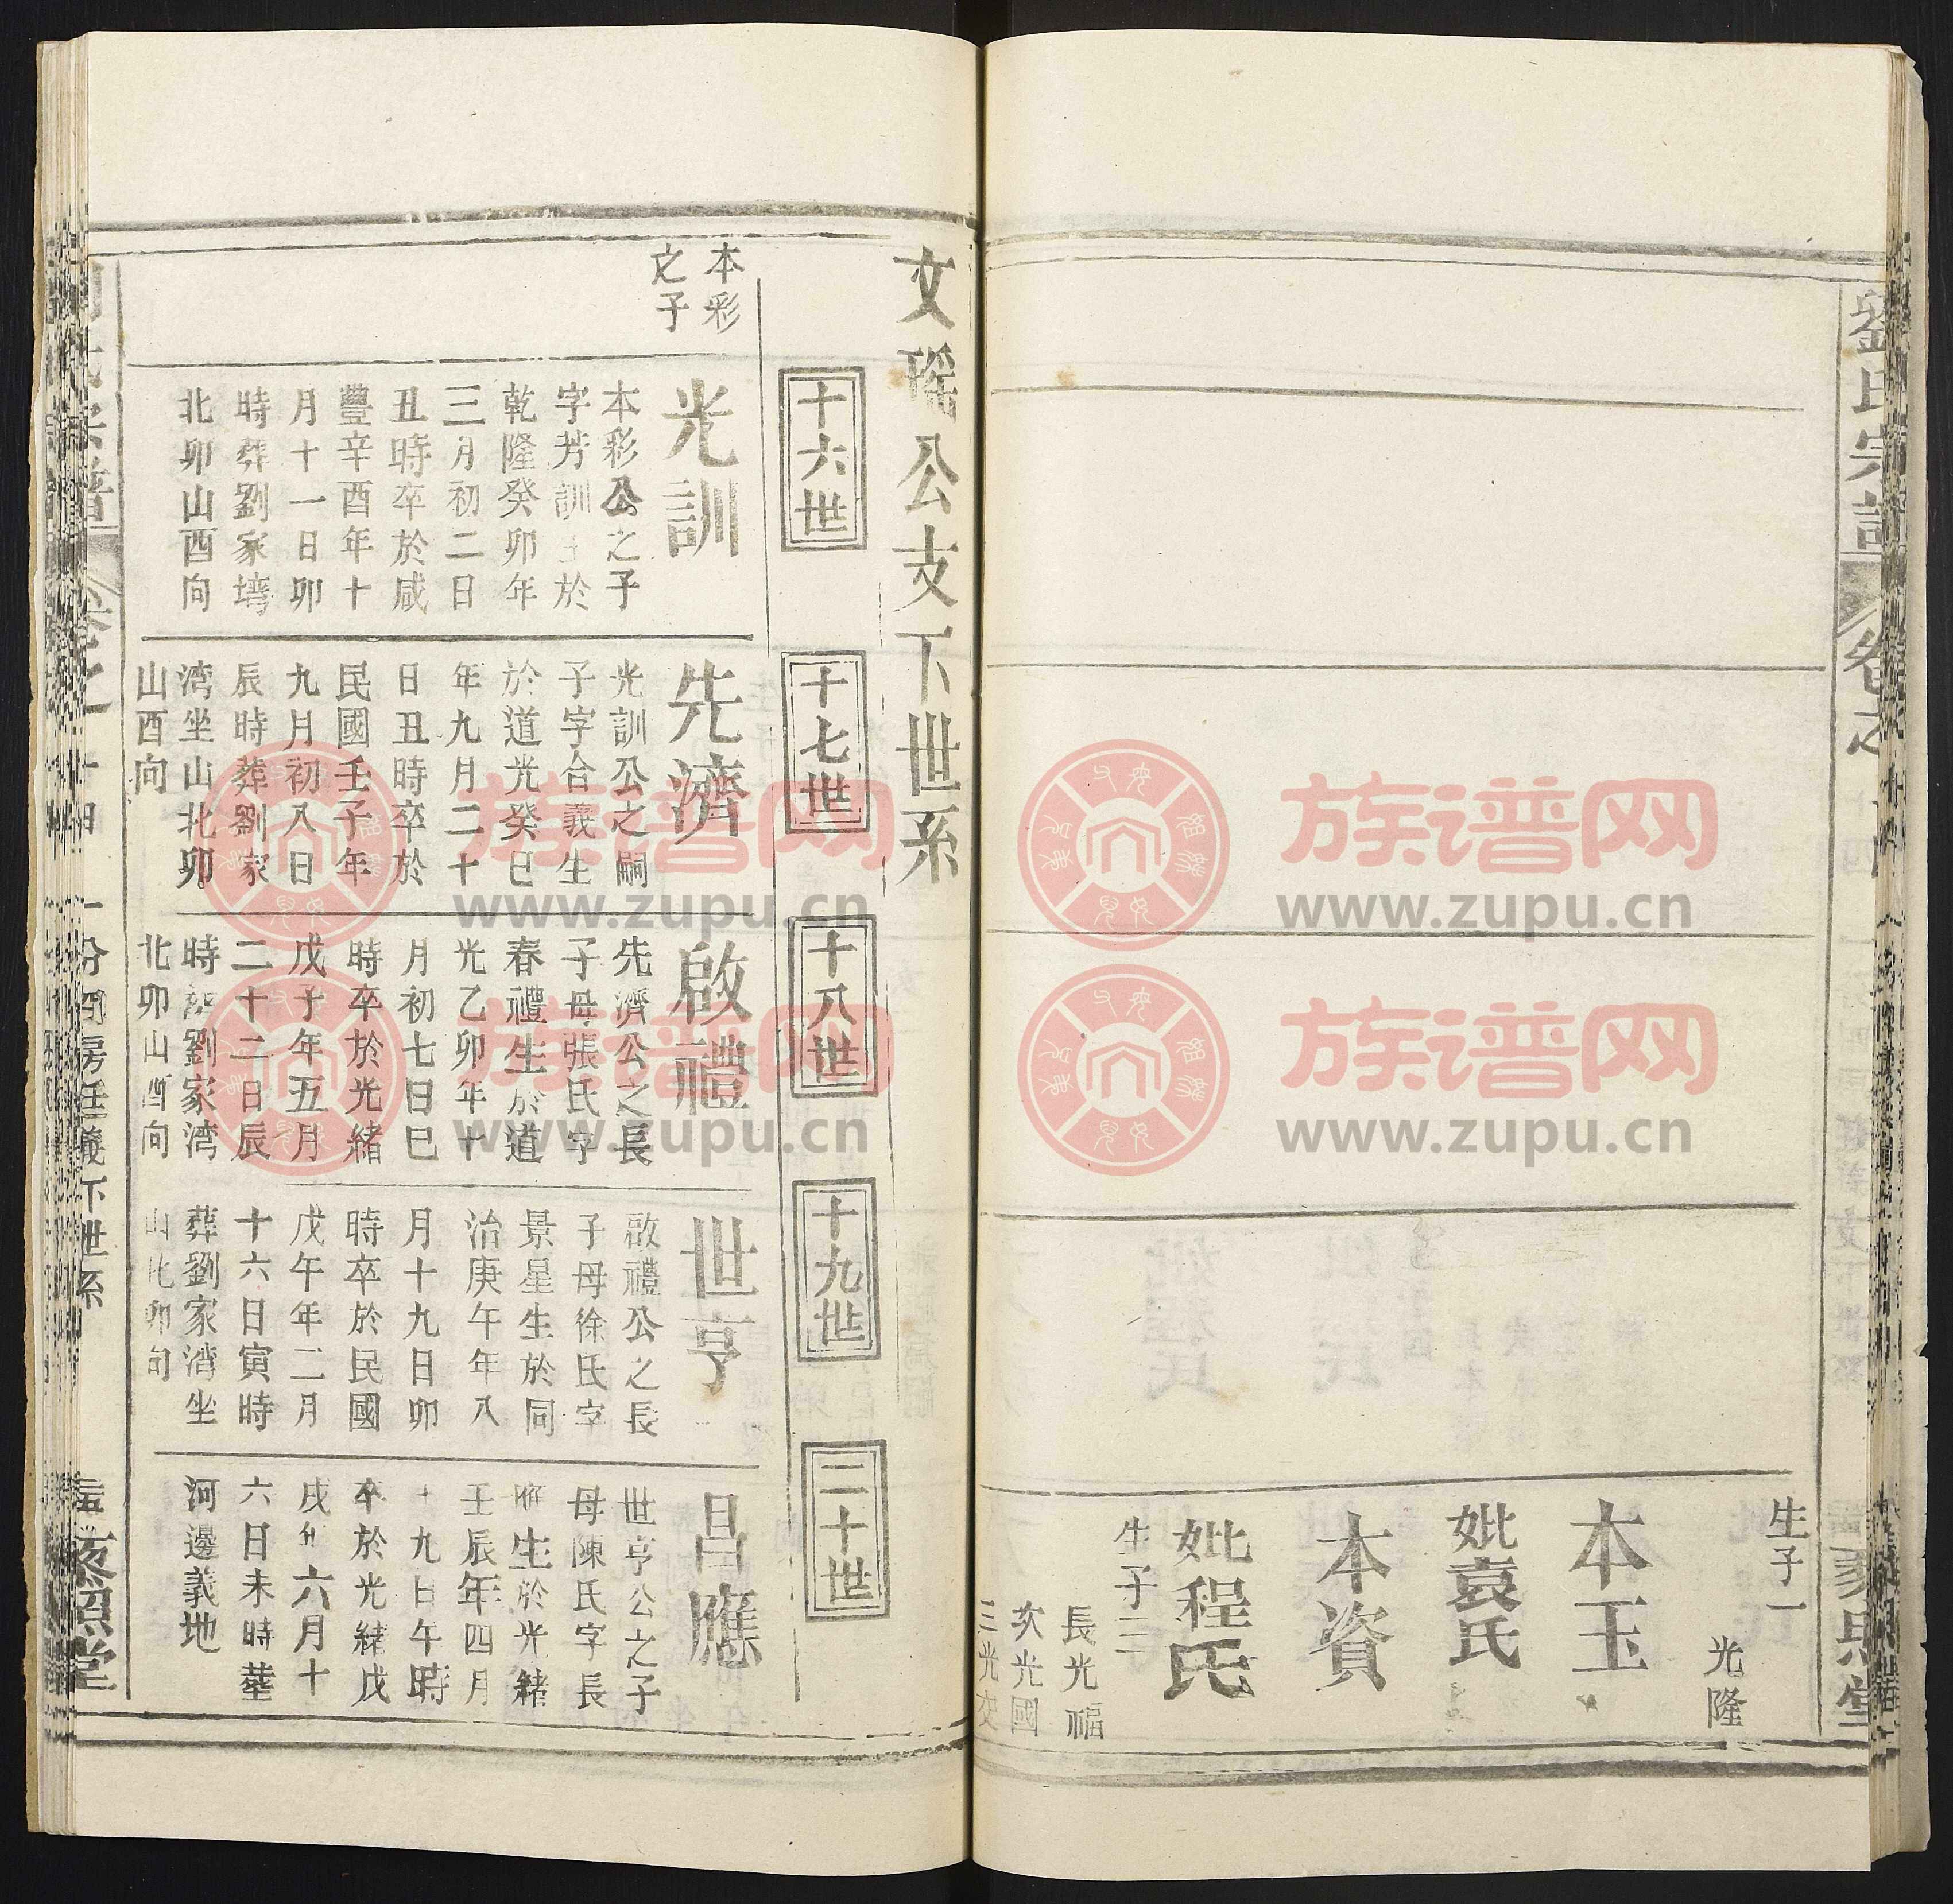 劉氏宗譜
卷之
生子一
光隆
本玉
妣袁氏
本資
妣程氏
生子三
長光福
次光國
三光
文瑶公支下世系
十六世
十七世
十八世
十九世
二十世
本彩
之子
光訓
本彩公之子
字芳訓生於
乾隆癸卯年
三月初二日
丑時卒於咸
豐辛酉年十
月十一日卯
時葬劉家塆
北卯山酉向
先濟
光訓公之嗣
子字合義生
於道光癸巳
年九月二十
日丑時卒於
民國壬子年
九月初八日
辰時葬劉家
湾坐山北卯
山酉向
啟禮
先濟公之長
子母張氏字
春禮生於道
光乙卯年十
月初七日巳
時卒於光緒
戊子年五月
二十二日辰
時葬劉家湾
北卯山酉向
世亨
啟禮公之長
子母徐氏字
景星生於同
治庚午年八
月十九日卯
時卒於民國
戊午年二月
十六日寅時
葬劉家湾坐
山北卯向
昌應
世亨公之子
母陳氏字長
生於光緒
壬辰年四月
十九日午時
卒於光緒戊
戌年六月十
六日未時葬
河邊義地
下世系
照堂
族谱网
www.zupu.cn
族谱网
www.zupu.cn
族谱网
www.zupu.cn
族谱网
www.zupu.cn